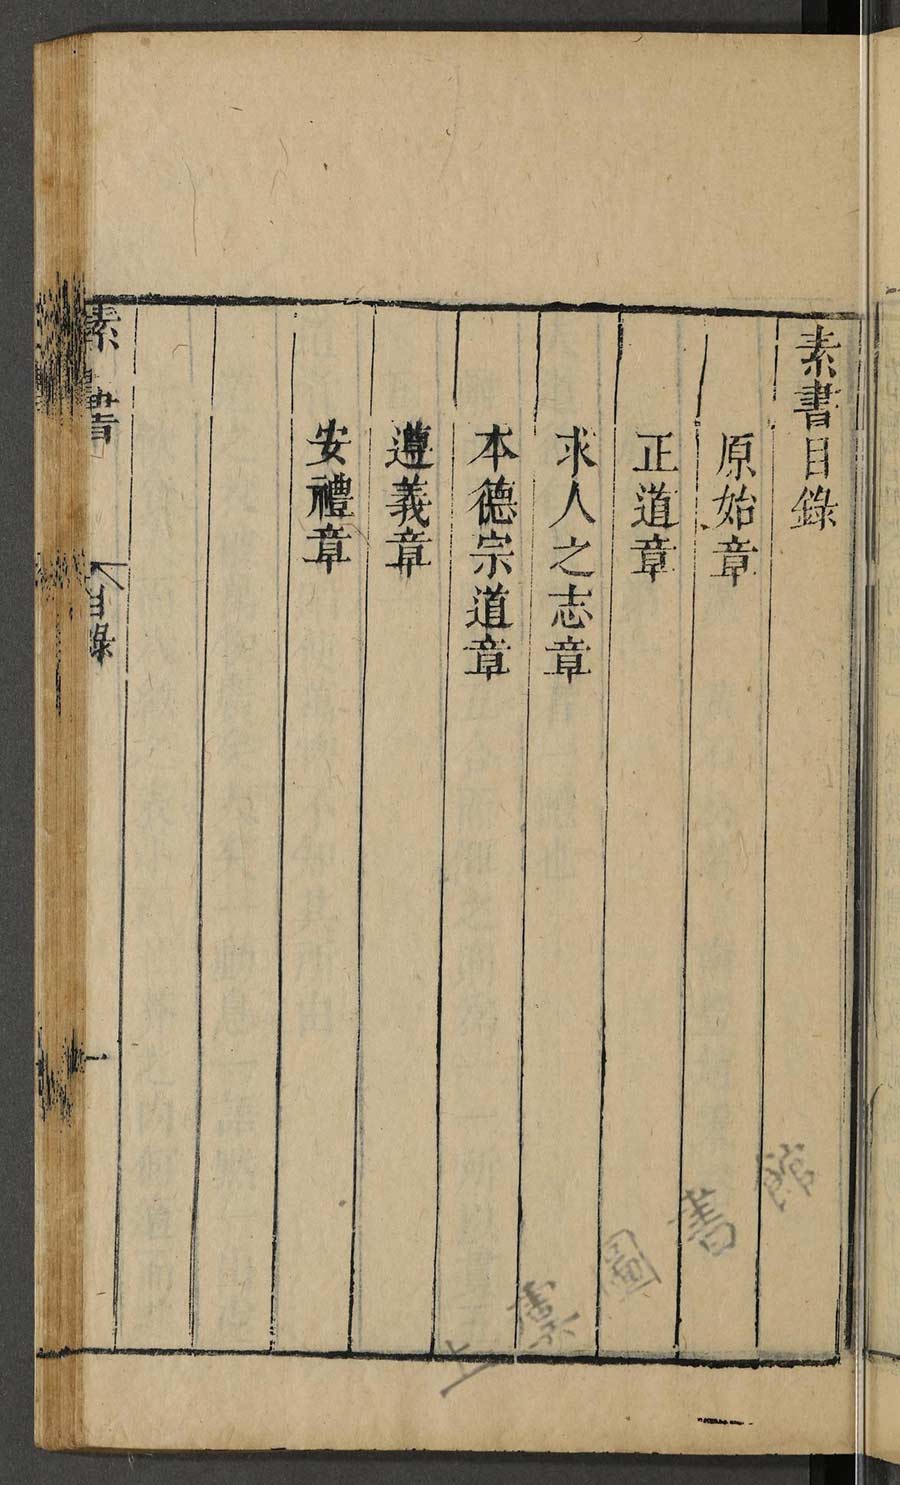 素書目錄
原始章
正道章
求人之志章
本德宗道章
遵義章
安禮章
素書
目錄
一
上虞圖書館